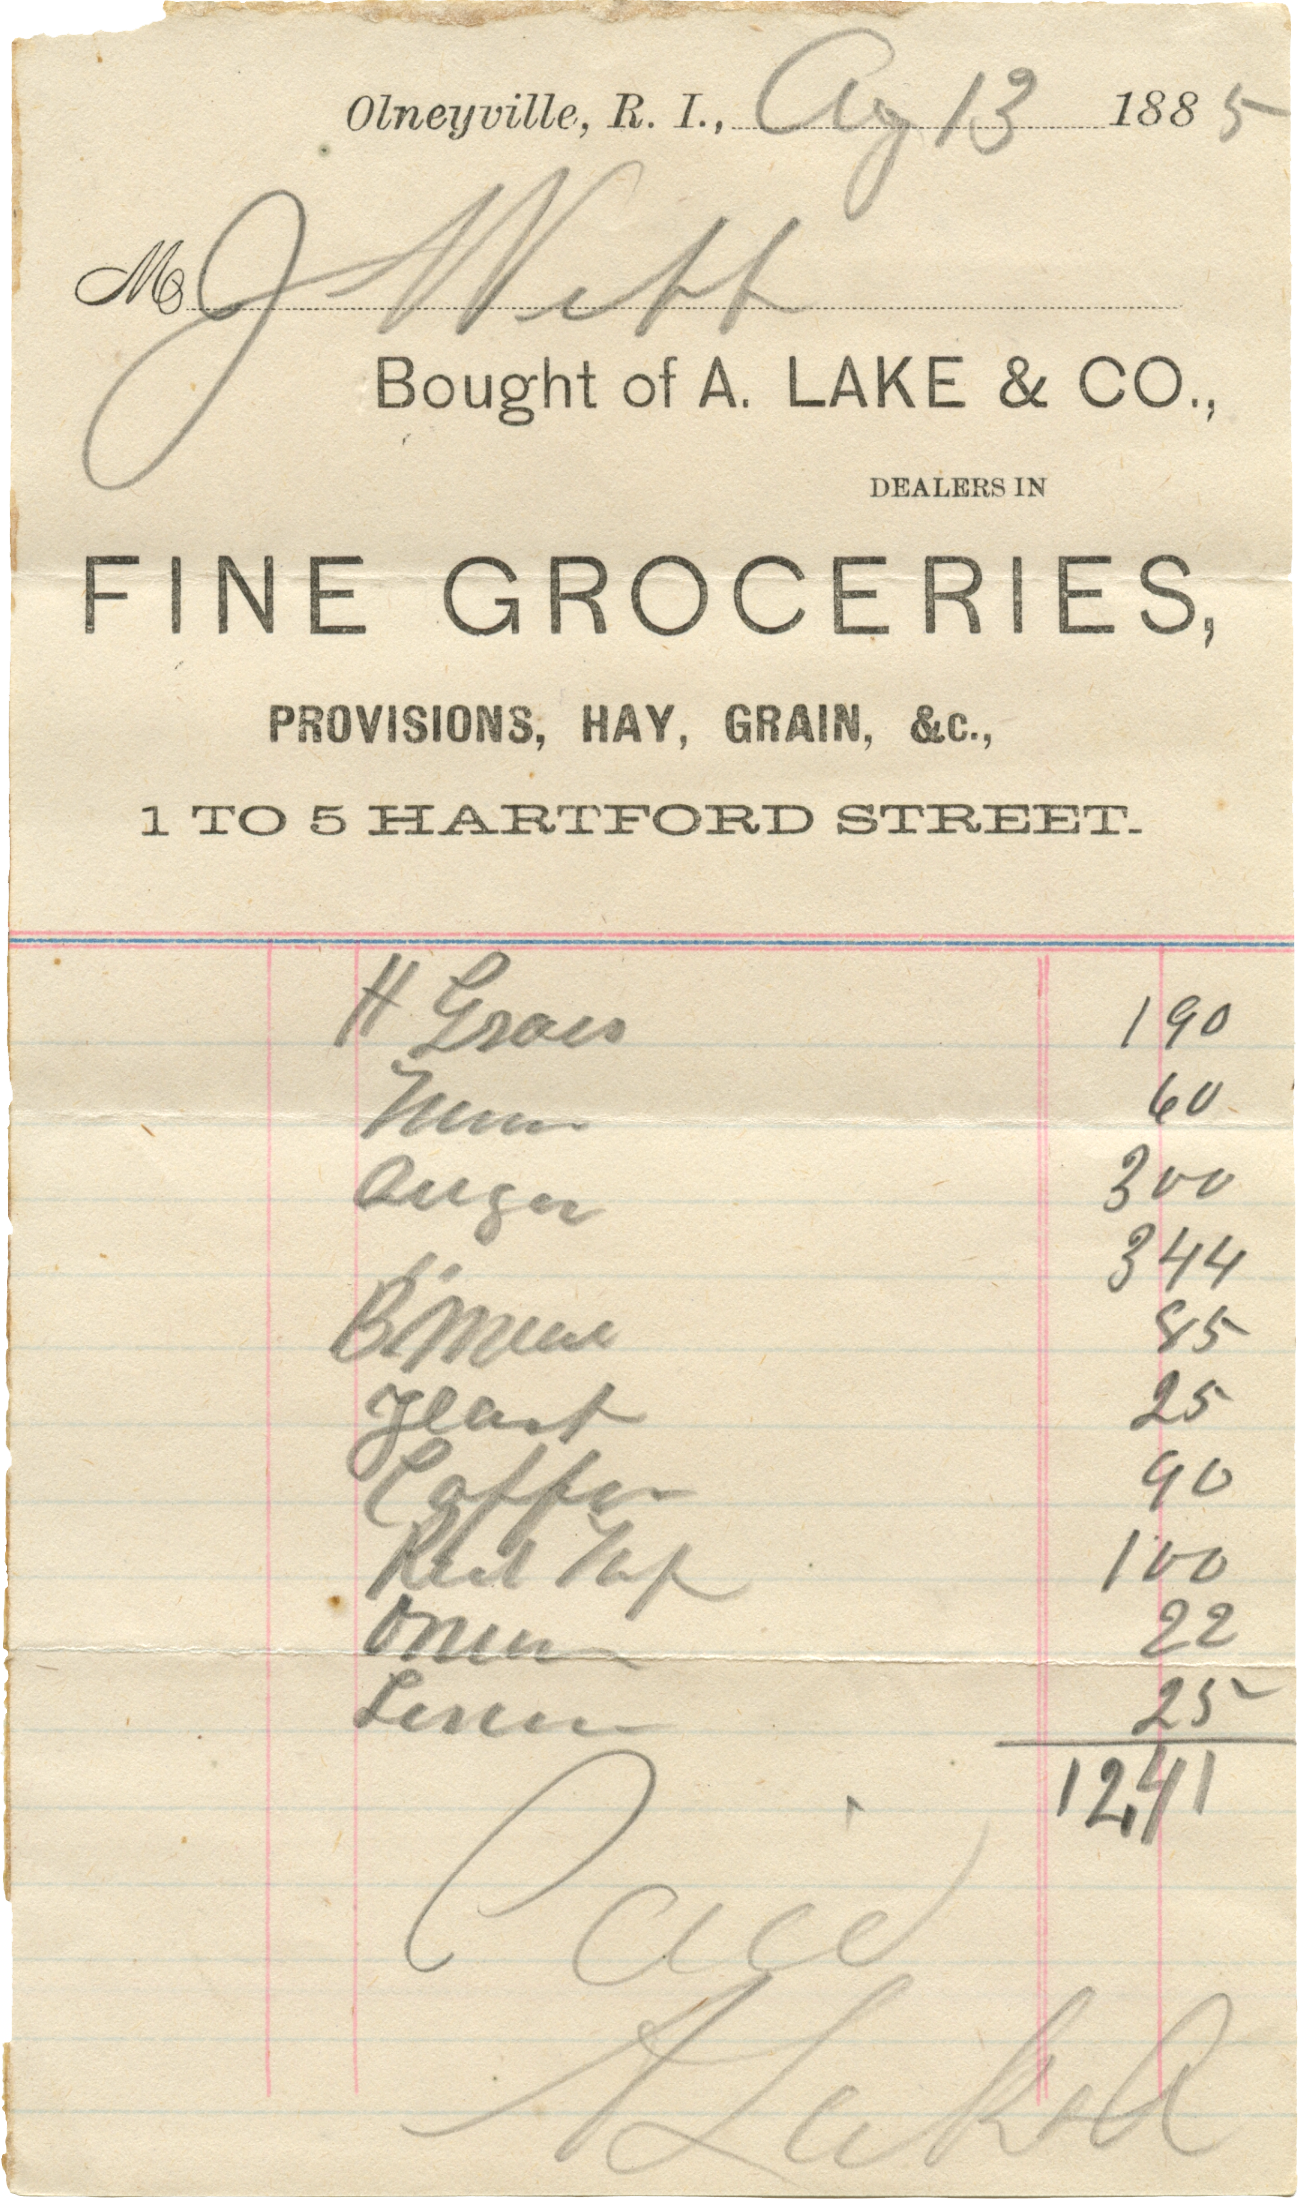 Olneyville, R. I., Aug 13 1885
M J Webb
Bought of A. LAKE & CO.,
DEALERS IN
FINE GROCERIES,
PROVISIONS, HAY, GRAIN, &c.,
1 TO 5 HARTFORD STREET.
H Grass 190
60
300
344
B 85
Yeast 25
Coffee 90
Red Top 100
22
25
1241
Paid
A Lake & Co